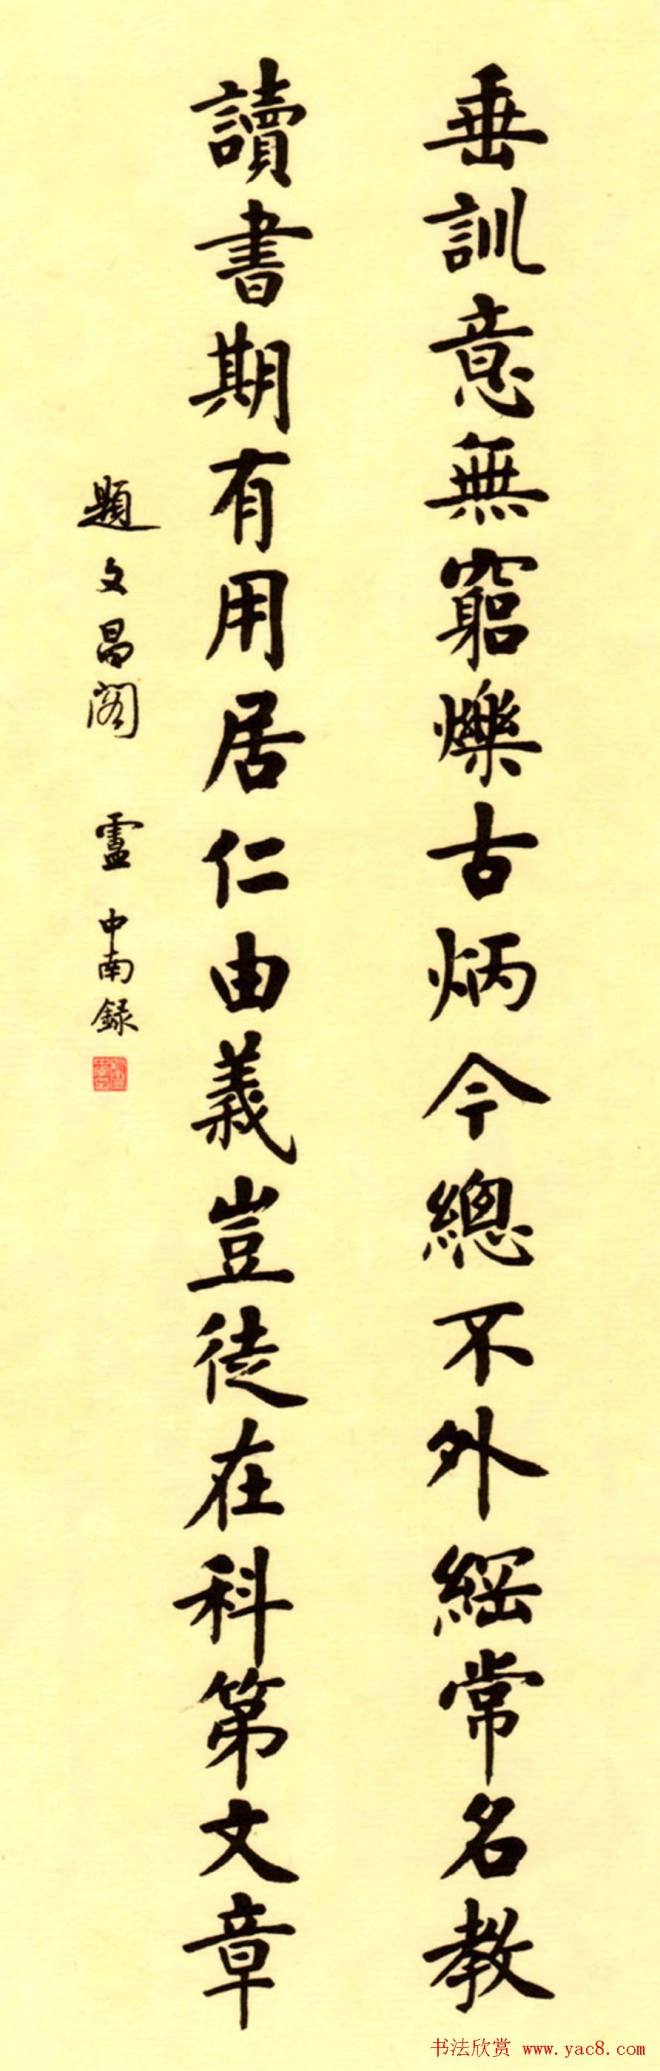 垂訓意無窮爍古炳今總不外綱常名教
讀書期有用居仁由義豈徒在科第文章
題文昌閣 盧中南録
书法欣赏 www.yac8.com